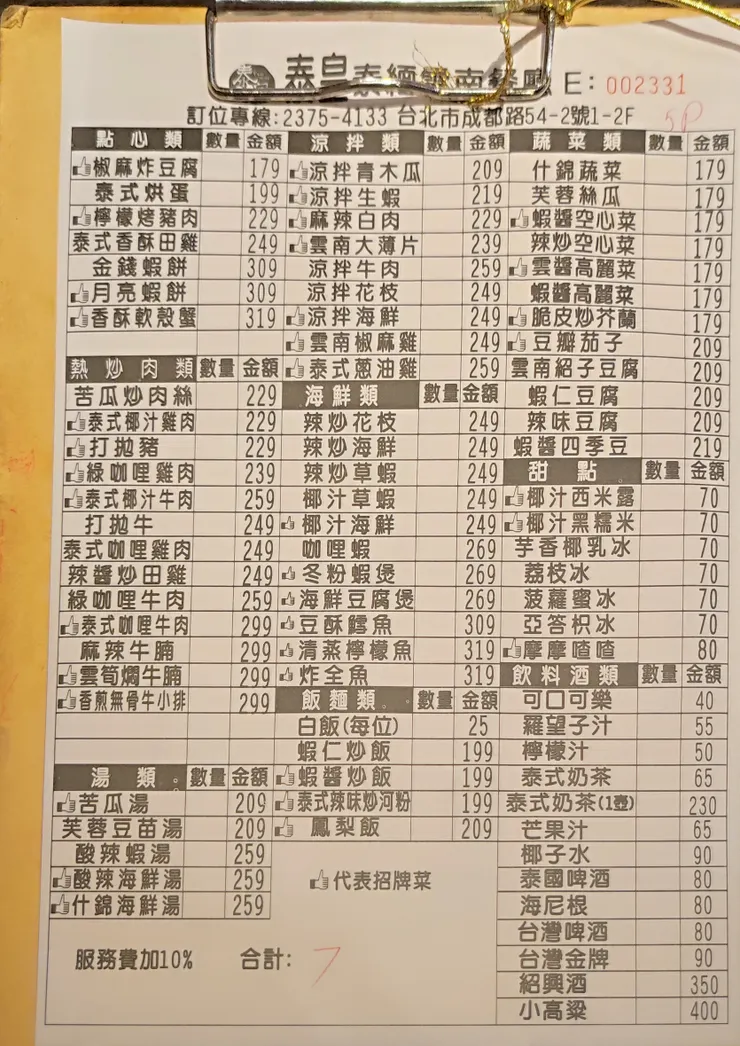 泰皇泰緬雲南餐廳 E: 002331
訂位專線:2375-4133 台北市成都路54-2號1-2F 5P
點心類 數量 金額
椒麻炸豆腐 179
泰式烘蛋 199
檸檬烤豬肉 229
泰式香酥田雞 249
金錢蝦餅 309
月亮蝦餅 309
香酥軟殼蟹 319
熱炒肉類 數量 金額
苦瓜炒肉絲 229
泰式椰汁雞肉 229
打拋豬 229
綠咖哩雞肉 239
泰式椰汁牛肉 259
打拋牛 249
泰式咖哩雞肉 249
辣醬炒田雞 249
綠咖哩牛肉 259
泰式咖哩牛肉 299
麻辣牛腩 299
雲筍燜牛腩 299
香煎無骨牛小排 299
湯類 數量 金額
苦瓜湯 209
芙蓉豆苗湯 209
酸辣蝦湯 259
酸辣海鮮湯 259
什錦海鮮湯 259
涼拌類 數量 金額
涼拌青木瓜 209
涼拌生蝦 219
麻辣白肉 229
雲南大薄片 239
涼拌牛肉 259
涼拌花枝 249
涼拌海鮮 249
雲南椒麻雞 249
泰式蔥油雞 259
海鮮類 數量 金額
辣炒花枝 249
辣炒海鮮 249
辣炒草蝦 249
椰汁草蝦 249
椰汁海鮮 249
咖哩蝦 269
冬粉蝦煲 269
海鮮豆腐煲 269
豆酥鱈魚 309
清蒸檸檬魚 319
炸全魚 319
飯麵類 數量 金額
白飯(每位) 25
蝦仁炒飯 199
蝦醬炒飯 199
泰式辣味炒河粉 199
鳳梨飯 209
代表招牌菜
蔬菜類 數量 金額
什錦蔬菜 179
芙蓉絲瓜 179
蝦醬空心菜 179
辣炒空心菜 179
雲醬高麗菜 179
蝦醬高麗菜 179
脆皮炒芥蘭 179
豆瓣茄子 209
雲南紹子豆腐 209
蝦仁豆腐 209
辣味豆腐 209
蝦醬四季豆 219
甜點 數量 金額
椰汁西米露 70
椰汁黑糯米 70
芋香椰乳冰 70
荔枝冰 70
菠蘿蜜冰 70
亞答枳冰 70
摩摩喳喳 80
飲料酒類 數量 金額
可口可樂 40
羅望子汁 55
檸檬汁 50
泰式奶茶 65
泰式奶茶(1壺) 230
芒果汁 65
椰子水 90
泰國啤酒 80
海尼根 80
台灣啤酒 80
台灣金牌 90
紹興酒 350
小高粱 400
服務費加10% 合計: 7